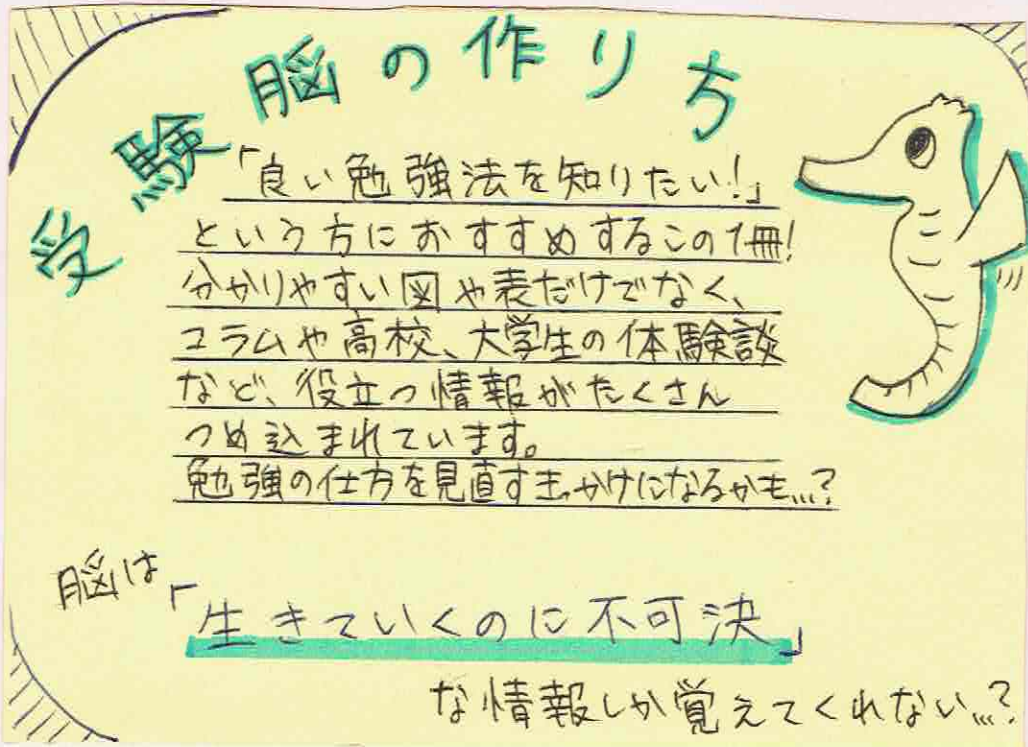 受験脳の作り方
「良い勉強法を知りたい!」
という方におすすめするこの1冊!
分かりやすい図や表だけでなく、
コラムや高校、大学生の体験談
など、役立つ情報がたくさん
つめ込まれています。
勉強の仕方を見直すきっかけになるかも...?
脳は
「生きていくのに不可決」
な情報しか覚えてくれない...?